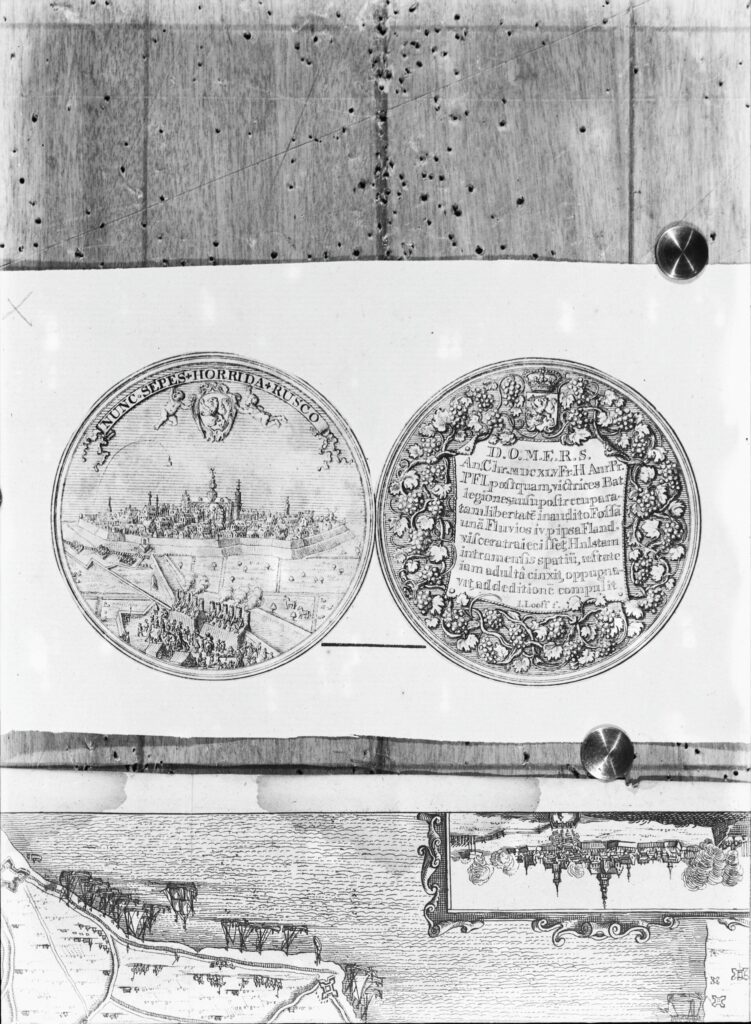 NUNC·SEPES·HORRIDA·RUSCO
D.O.M.E.R.S.
An. Chr. MDCXLV Fr. H Aur. Pr.
PFI, postquam, victrices Bat
legiones ausu post recupara-
tam libertatē inaudito Fossā
unā, Fluvios iv p ipsa Fland.
viscera traiecisset, Hulstam
intra mensis spatiū, æstate
iam adultâ cinxit, oppugna-
vit, ad deditionē compulit
I. Looff f.